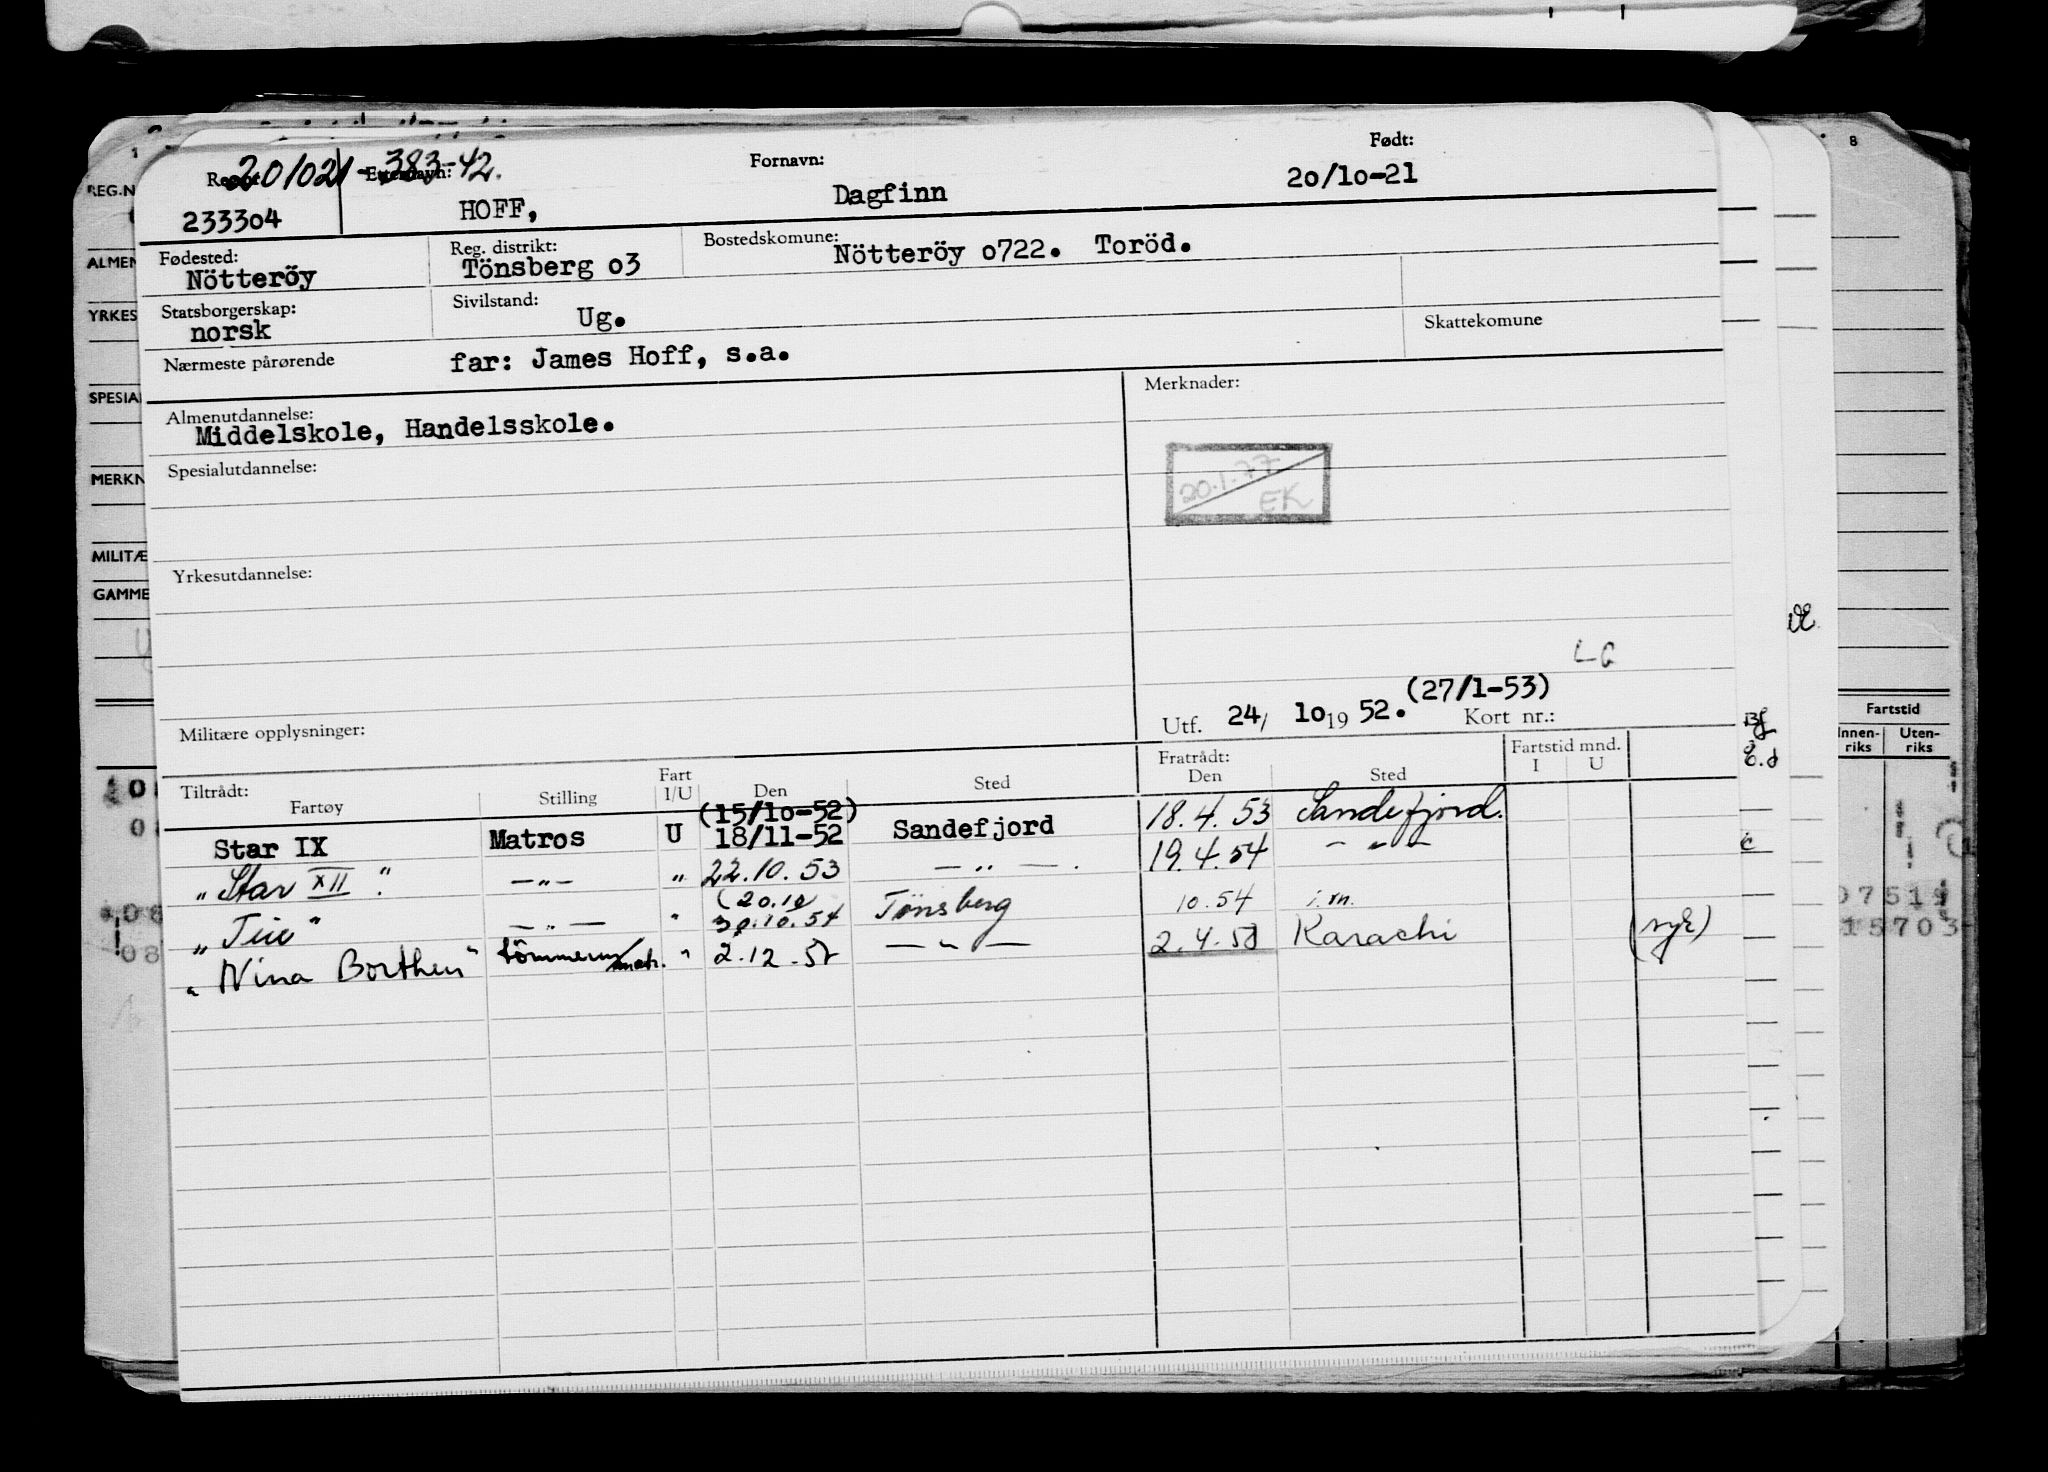 201021-383-42.
Etternavn: Fornavn: Født:
233304 HOFF, Dagfinn 20/10-21
Fødested: Reg. distrikt: Bostedskomune:
Nötteröy Tönsberg 03 Nötteröy 0722. Toröd.
Statsborgerskap: Sivilstand:
norsk Ug. Skattekomune
Nærmeste pårørende far: James Hoff, s.a.
Almenutdannelse: Merknader:
Middelskole, Handelsskole.
Spesialutdannelse:
20.1.77
EK
Yrkesutdannelse:
LG
(27/1-53)
Militære opplysninger: Utf. 24/ 10 19 52. Kort nr.:
Tiltrådt: Fart Fratrådt: Fartstid mnd.
Fartøy Stilling I/U Den Sted Den Sted I U
(15/10-52)
Star IX Matros U 18/11-52 Sandefjord 18.4.53 Sandefjord.
"Star XII". —"— " 22.10.53 — " —. 19.4.54 — " —
(20.10
"Teie" — " — " 30.10.54 Tønsberg 10.54 i.m.
"Nina Borthen" tömmerm/matr. " 2.12.57 — " — 2.4.58 Karachi (syk)
REG.N
ALMEN
YRKES
SPESIA
MERKN
MILITÆ
GAMME
8
Fartstid
Innen-riks Uten-riks
07519
15703